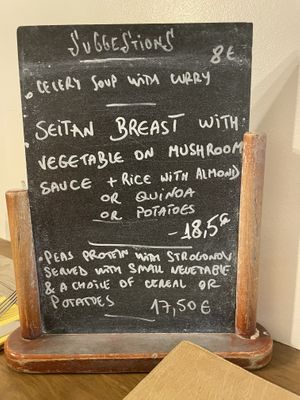 SUGGESTIONS
8€
• CELERY SOUP WITH CURRY
SEITAN BREAST WITH
VEGETABLE ON MUSHROOM
SAUCE + RICE WITH ALMOND
OR QUINOA
OR POTATOES
- 18,5€
• PEAS PROTEIN WITH STROGONOV
SERVED WITH SMALL VEGETABLE
& A CHOICE OF CEREAL OR
POTATOES 17,50 €